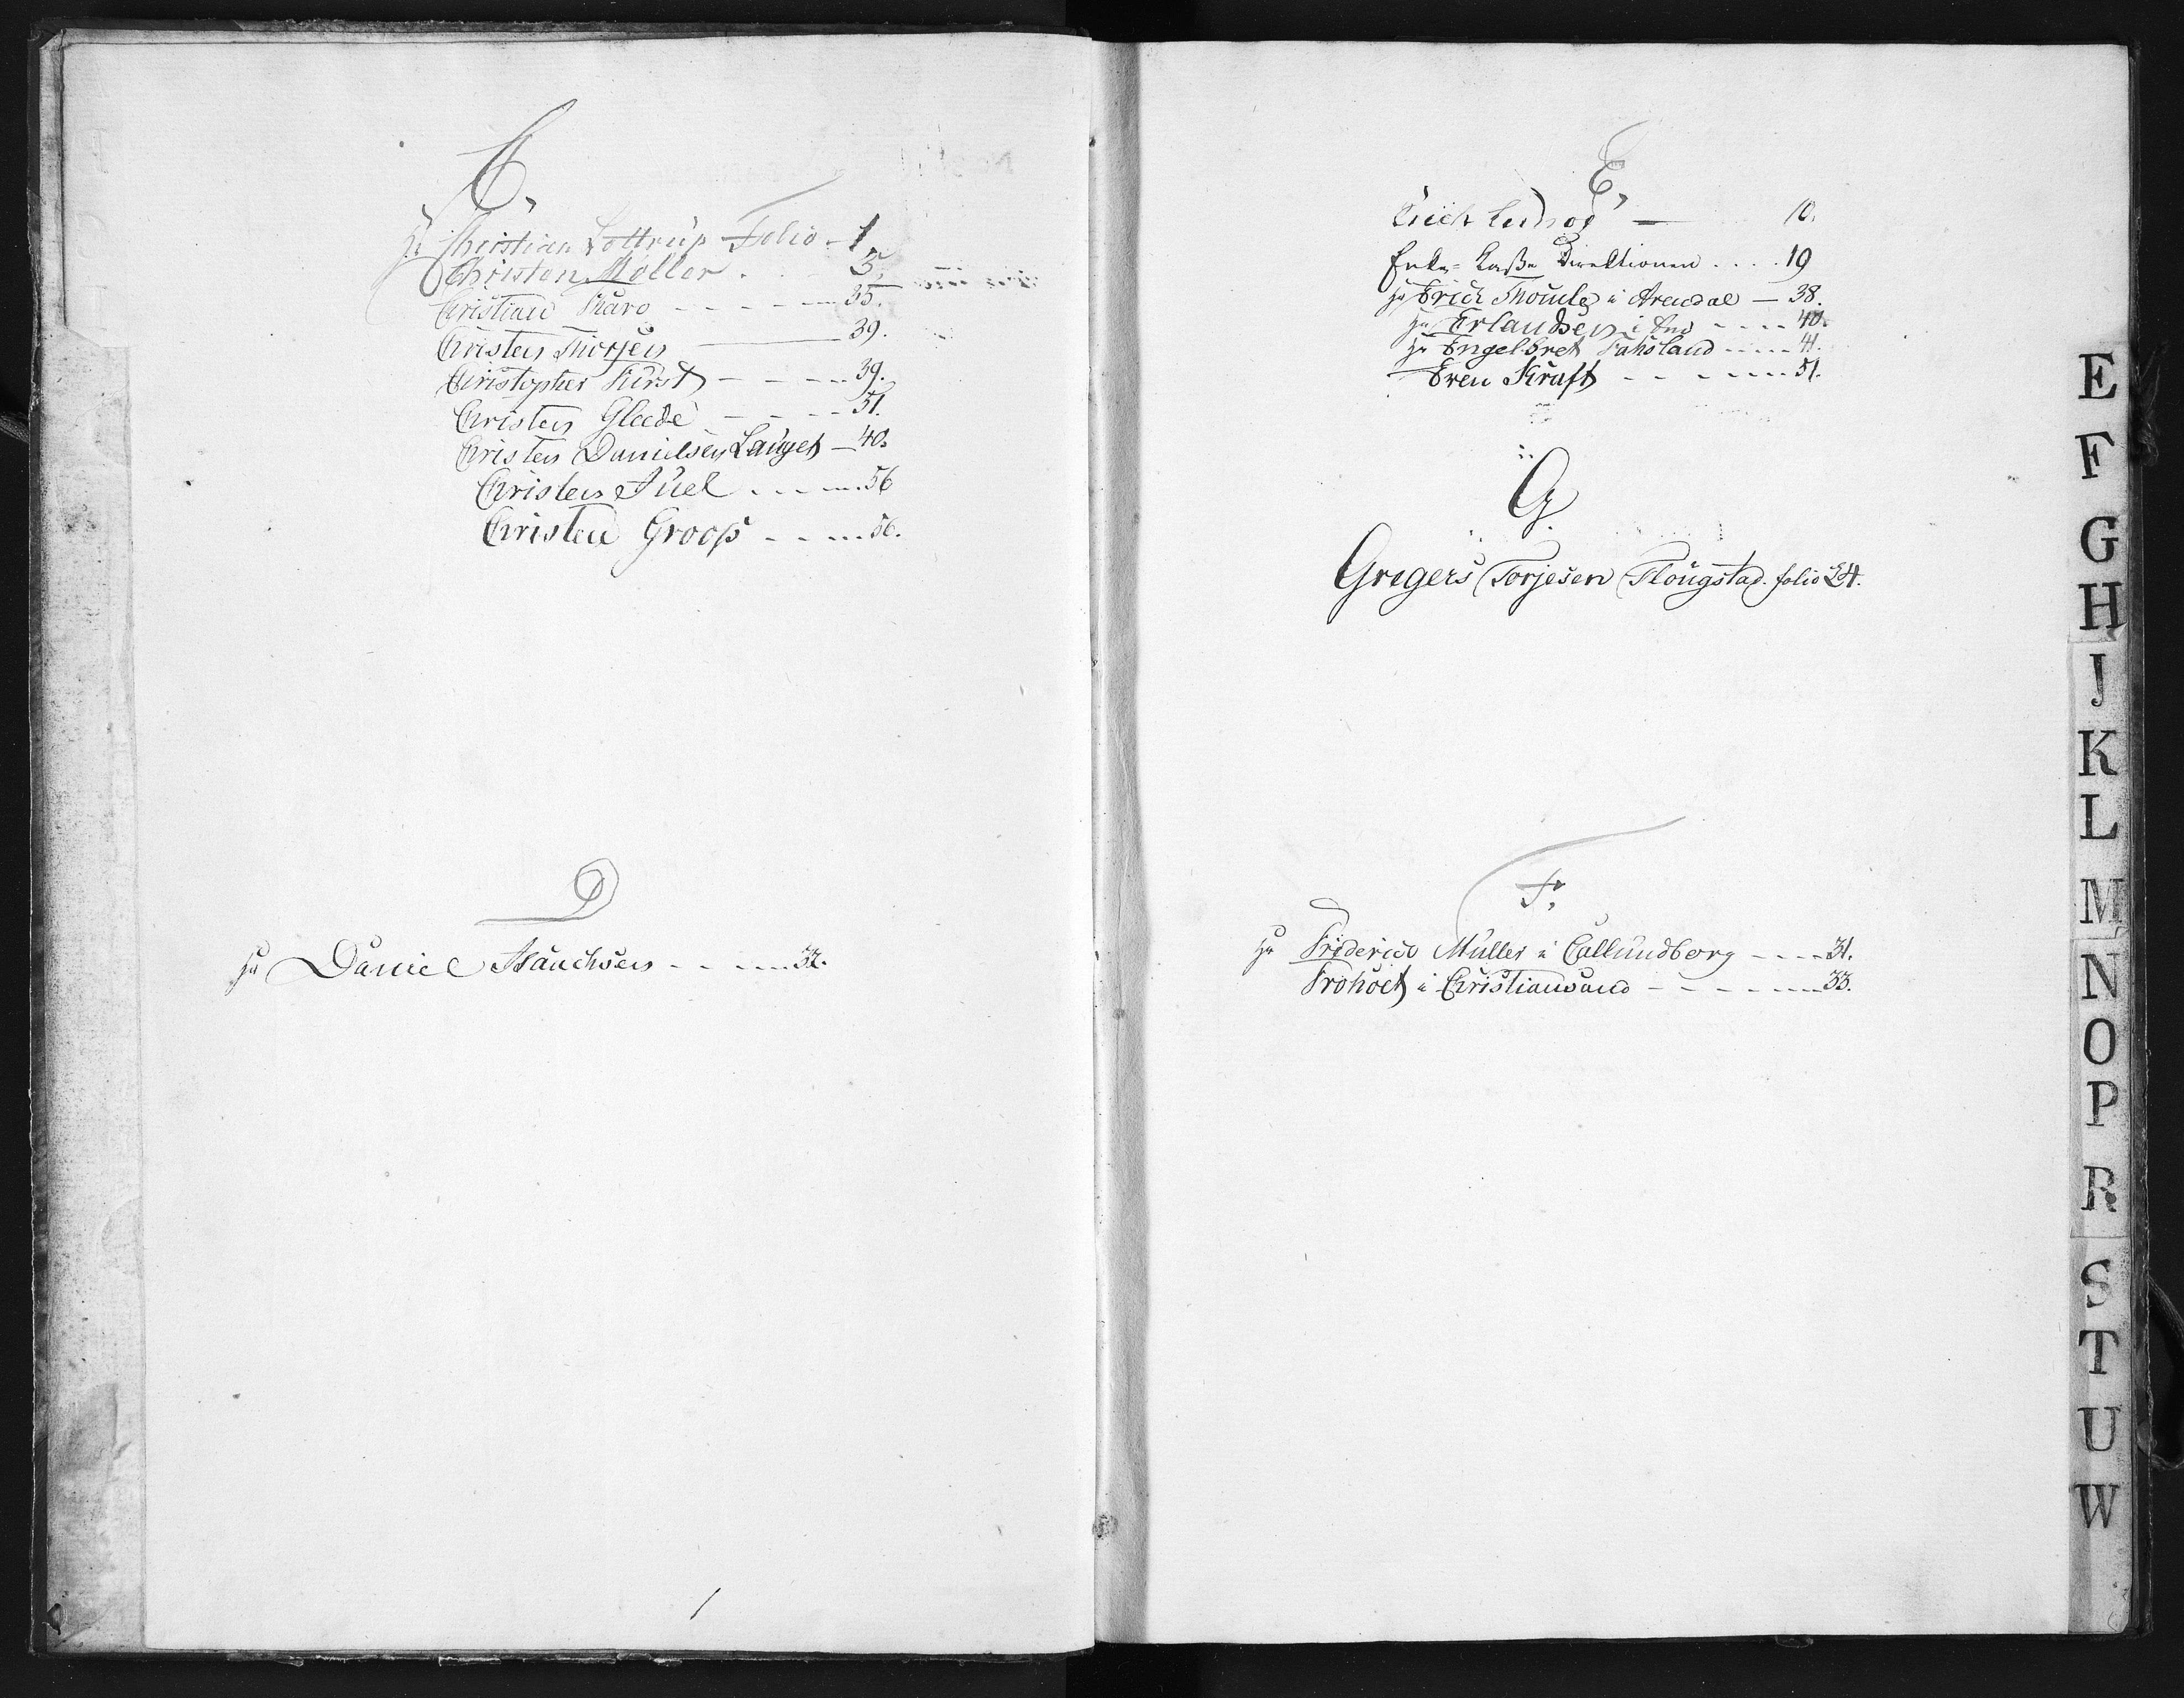 C,
Hr Christian Lottrup Folio - 1
Christen Möller . 3.
Christian Skaro - - - - 35.
Christen Thorsen 39.
Christopher Fürst - - - 39.
Christen Gleede - - - 51.
Christen Danielsen Lauget - 40.
Christen Juel . . - - . 56
Christen Groos - - . . . 56.
D
Hr Daniel Isaachsen - - - - 32.
E,
Erich - 10.
Enke-Kaße Direktionen . . . . 19
Hr Erich Thomle i Arendal — 38.
Hr Erlandsen i - - - - 40.
Hr Engelbret Fahsland - - - - 41.
Even Kraft - - - - - - 51.
G
Gregers Torjesen Flougstad. folio 24.
F,
Hr Friderich Müller i Callundborg - - - - 31.
Frohöet i Christiansand - - - - - - 33.
E
F
G
H
J
K
L
M
N
O
P
R
S
T
U
W